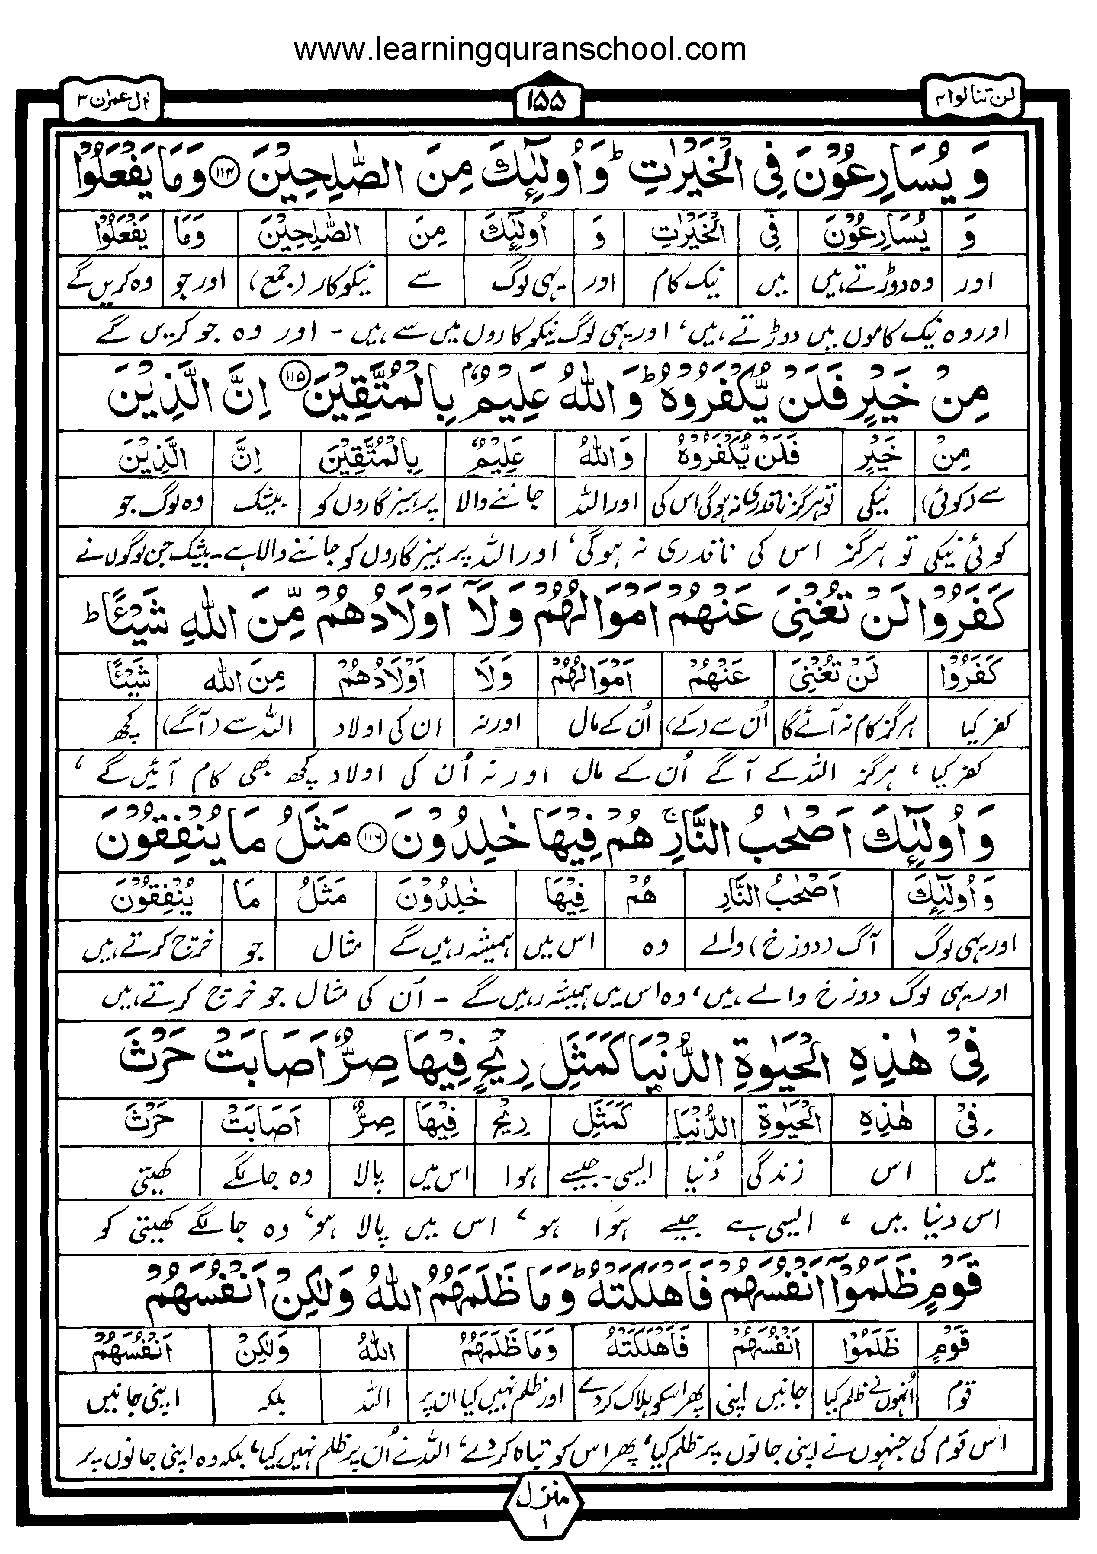 www.learningquranschool.com
لن تنالوا ۴
۱۵۵
ال عمران ۳
وَ یُسَارِعُوْنَ فِی الْخَیْرٰتِ ؕ وَ اُولٰٓئِکَ مِنَ الصّٰلِحِیْنَ ﴿۱۱۴﴾ وَ مَا یَفْعَلُوْا
وَ یُسَارِعُوْنَ فِی الْخَیْرٰتِ وَ اُولٰٓئِکَ مِنَ الصّٰلِحِیْنَ وَمَا یَفْعَلُوْا
اور وہ دوڑتے ہیں میں نیک کام اور یہی لوگ سے نیکوکار (جمع) اور جو وہ کریں گے
اور وہ نیک کاموں میں دوڑتے ہیں، اور یہی لوگ نیکوکاروں میں سے ہیں - اور وہ جو کریں گے
مِنْ خَیْرٍ فَلَنْ یُّکْفَرُوْهُ ؕ وَ اللّٰهُ عَلِیْمٌۢ بِالْمُتَّقِیْنَ ﴿۱۱۵﴾ اِنَّ الَّذِیْنَ
مِنْ خَیْرٍ فَلَنْ یُّکْفَرُوْهُ وَاللّٰهُ عَلِیْمٌ بِالْمُتَّقِیْنَ اِنَّ الَّذِیْنَ
سے (کوئی) نیکی تو ہرگز ناقدری نہ ہوگی اس کی اور اللہ جاننے والا پرہیزگاروں کو بیشک وہ لوگ جو
کوئی نیکی تو ہرگز اس کی ناقدری نہ ہوگی، اور اللہ پرہیزگاروں کو جاننے والا ہے - بیشک جن لوگوں نے
کَفَرُوْا لَنْ تُغْنِیَ عَنْهُمْ اَمْوَالُهُمْ وَلَاۤ اَوْلَادُهُمْ مِّنَ اللّٰهِ شَیْئًا ؕ
کَفَرُوْا لَنْ تُغْنِیَ عَنْهُمْ اَمْوَالُهُمْ وَلَا اَوْلَادُهُمْ مِنَ اللّٰه شَیْئًا
کفر کیا ہرگز کام نہ آئے گا اُن سے (کے) اُن کے مال اور نہ ان کی اولاد اللہ سے (آگے) کچھ
کفر کیا، ہرگز اللہ کے آگے اُن کے مال اور نہ اُن کی اولاد کچھ بھی کام آئیں گے،
وَ اُولٰٓئِکَ اَصْحٰبُ النَّارِ ۚ هُمْ فِیْهَا خٰلِدُوْنَ ﴿۱۱۶﴾ مَثَلُ مَا یُنْفِقُوْنَ
وَ اُولٰٓئِکَ اَصْحٰبُ النَّارِ هُمْ فِیْهَا خٰلِدُوْنَ مَثَلُ مَا یُنْفِقُوْنَ
اور یہی لوگ آگ (دوزخ) والے وہ اس میں ہمیشہ رہیں گے مثال جو خرچ کرتے ہیں
اور یہی لوگ دوزخ والے ہیں، وہ اس میں ہمیشہ رہیں گے - اُن کی مثال جو خرچ کرتے ہیں
فِیْ هٰذِهِ الْحَیٰوةِ الدُّنْیَا کَمَثَلِ رِیْحٍ فِیْهَا صِرٌّ اَصَابَتْ حَرْثَ
فِیْ هٰذِهِ الْحَیٰوةِ الدُّنْیَا کَمَثَلِ رِیْحٍ فِیْهَا صِرٌّ اَصَابَتْ حَرْثَ
میں اس زندگی دُنیا ایسی - جیسے ہوا اس میں پالا وہ جا لگے کھیتی
اس دنیا میں، ایسی ہے جیسے ہوا ہو، اس میں پالا ہو، وہ جا لگے کھیتی کو
قَوْمٍ ظَلَمُوْۤا اَنْفُسَهُمْ فَاَهْلَکَتْهُ ؕ وَ مَا ظَلَمَهُمُ اللّٰهُ وَلٰکِنْ اَنْفُسَهُمْ
قَوْمٍ ظَلَمُوْا اَنْفُسَهُمْ فَاَهْلَکَتْهُ وَمَا ظَلَمَهُمُ اللّٰهُ وَلٰکِنْ اَنْفُسَهُمْ
قوم اُنہوں نے ظلم کیا جانیں اپنی پھر اسکو ہلاک کر دے اور ظلم نہیں کیا ان پر اللہ بلکہ اپنی جانیں
اُس قوم کی جنہوں نے اپنی جانوں پر ظلم کیا، پھر اس کو تباہ کر دے، اللہ نے اُن پر ظلم نہیں کیا، بلکہ وہ اپنی جانوں پر
منزل
۱